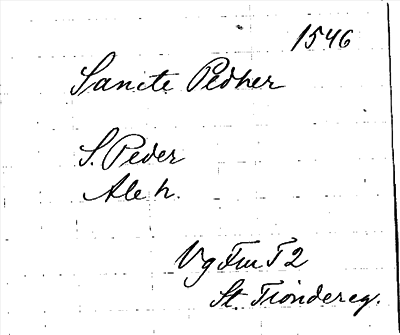 1546
Sancte Pedher
S. Peder
Ale h.
Vg Fru T 2
St. Tiondereg.